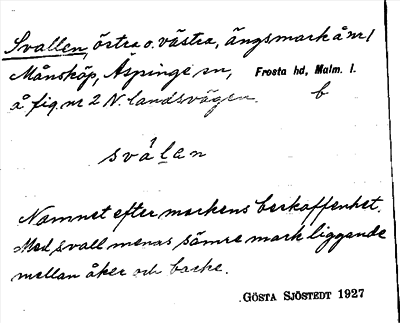 Svallen, östra o. västra, ängsmark å nr 1
Månsköp, Äspinge sn, Frosta hd, Malm. l.
å fig. nr 2 N. landsvägen. b
svålan
Namnet efter markens beskaffenhet.
Med svall menas sämre mark liggande
mellan åker och backe.
GÖSTA SJÖSTEDT 1927